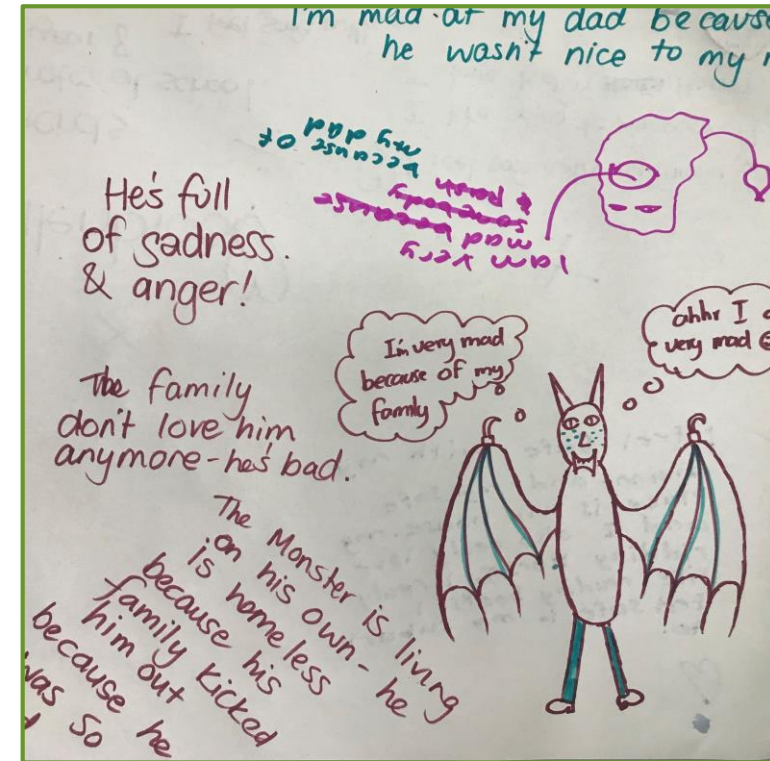 I'm mad at my dad because
he wasn't nice to my
I am very
mad because
somebody
& Parsh
because of
my dad
He's full
of sadness.
& anger!
I'm very mad
because of my
family
ahhr I
very mad
The family
don't love him
anymore - he's bad.
The Monster is living
on his own - he
is homeless
because his
family kicked
him out
because he
was so